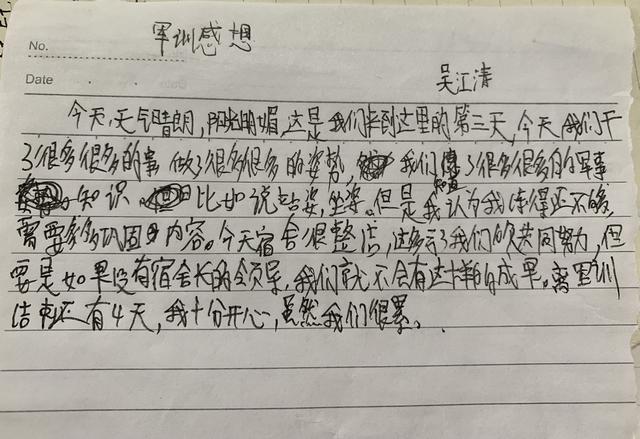 军训感想
No.
Date
吴江清
今天,天气晴朗,阳光明媚,这是我们来到这里的第三天,今天我们干
了很多很多的事 做了很多很多的姿势, 我们懂了很多很多的军事
知识 比如说站姿,坐姿。但是我认为我懂得还不够,
需要多多巩固 内容。今天宿舍很整洁,这多亏了我们的共同努力,但
要是如果没有宿舍长的领导,我们就不会有这样的成果。离军训
结束还有4天,我十分开心,虽然我们很累。